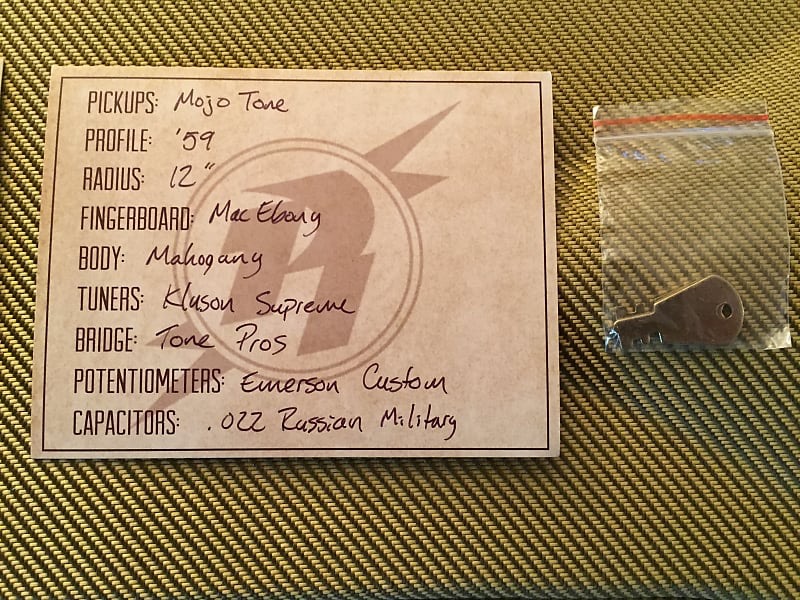 PICKUPS: Mojo Tone
PROFILE: '59
RADIUS: 12"
FINGERBOARD: Mac Ebony
BODY: Mahogany
TUNERS: Kluson Supreme
BRIDGE: Tone Pros
POTENTIOMETERS: Emerson Custom
CAPACITORS: .022 Russian Military
R